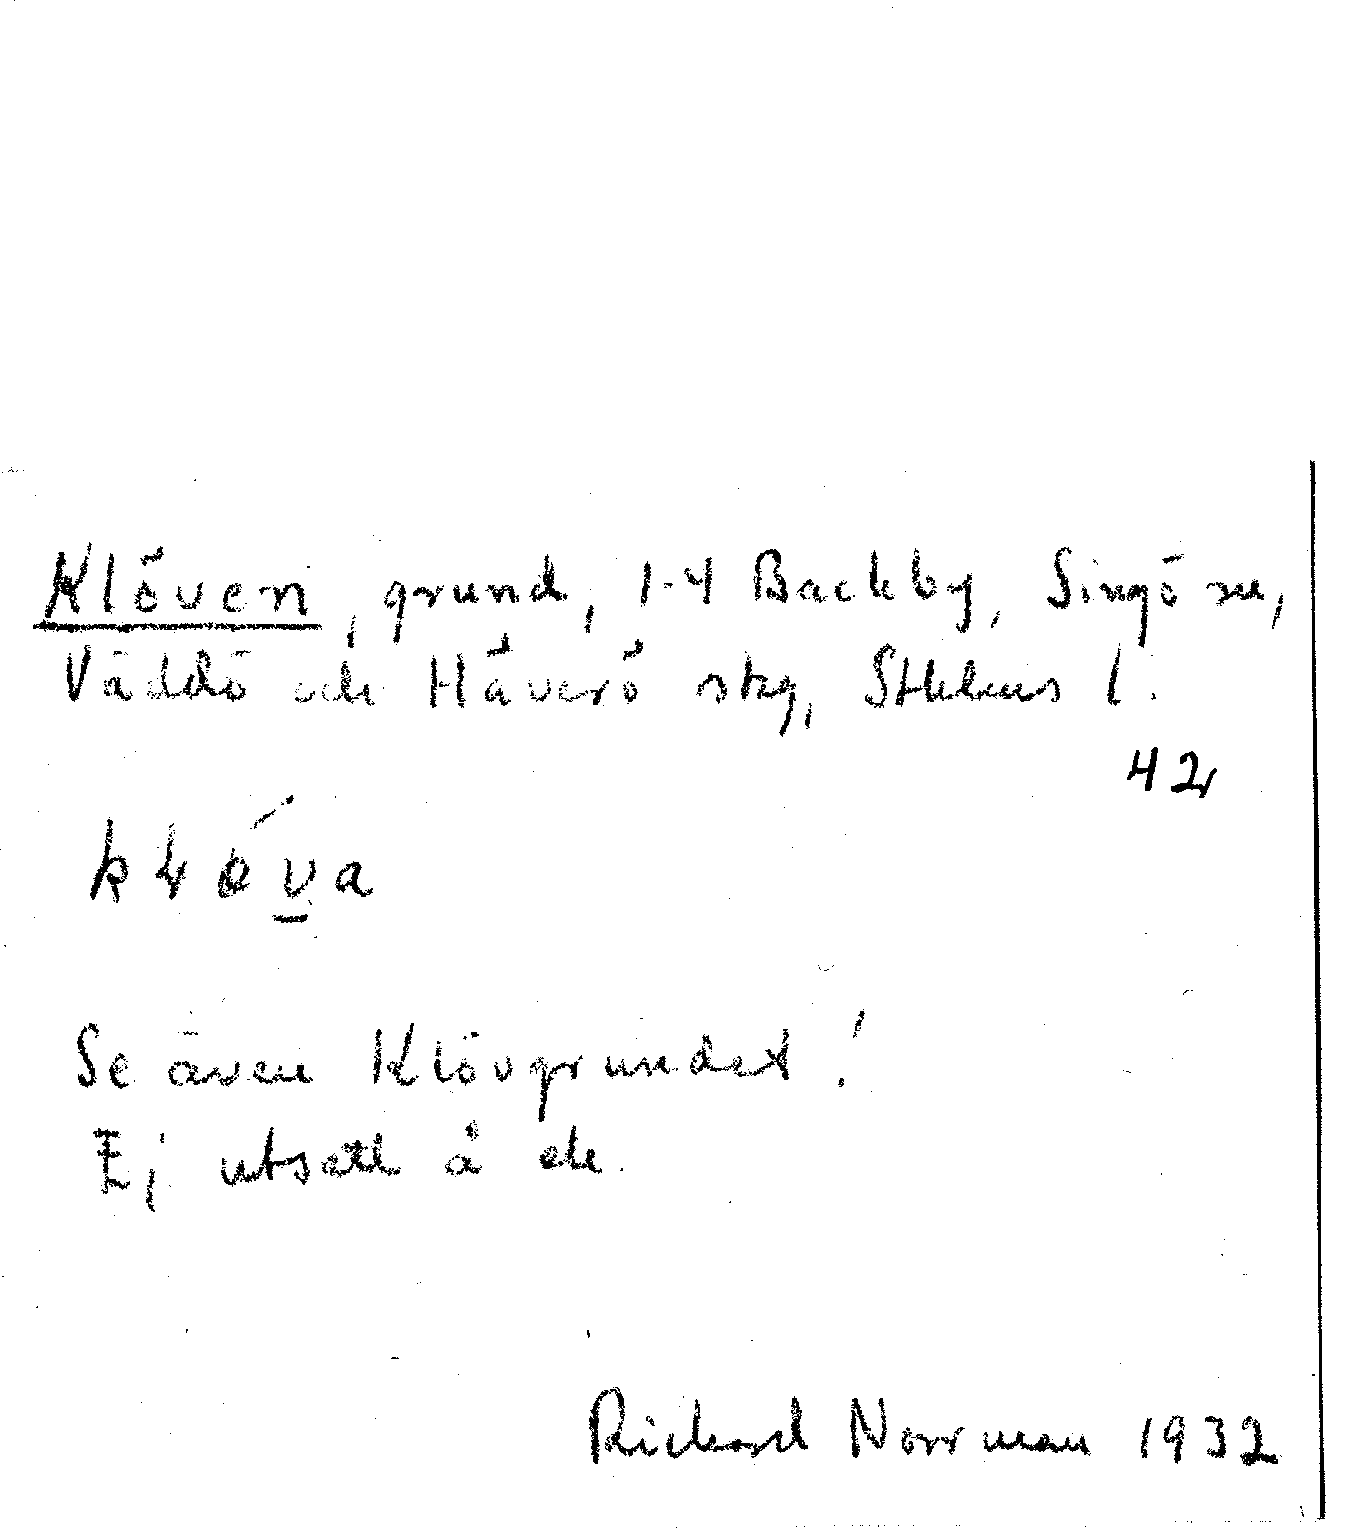 Klöven, grund, 1-4 Backby, Singö sn,
Väddö och Häverö skg, Sthlms l.
42
Se även Klövgrundet!
Ej utsatt å ek.
Rickard Norrman 1932